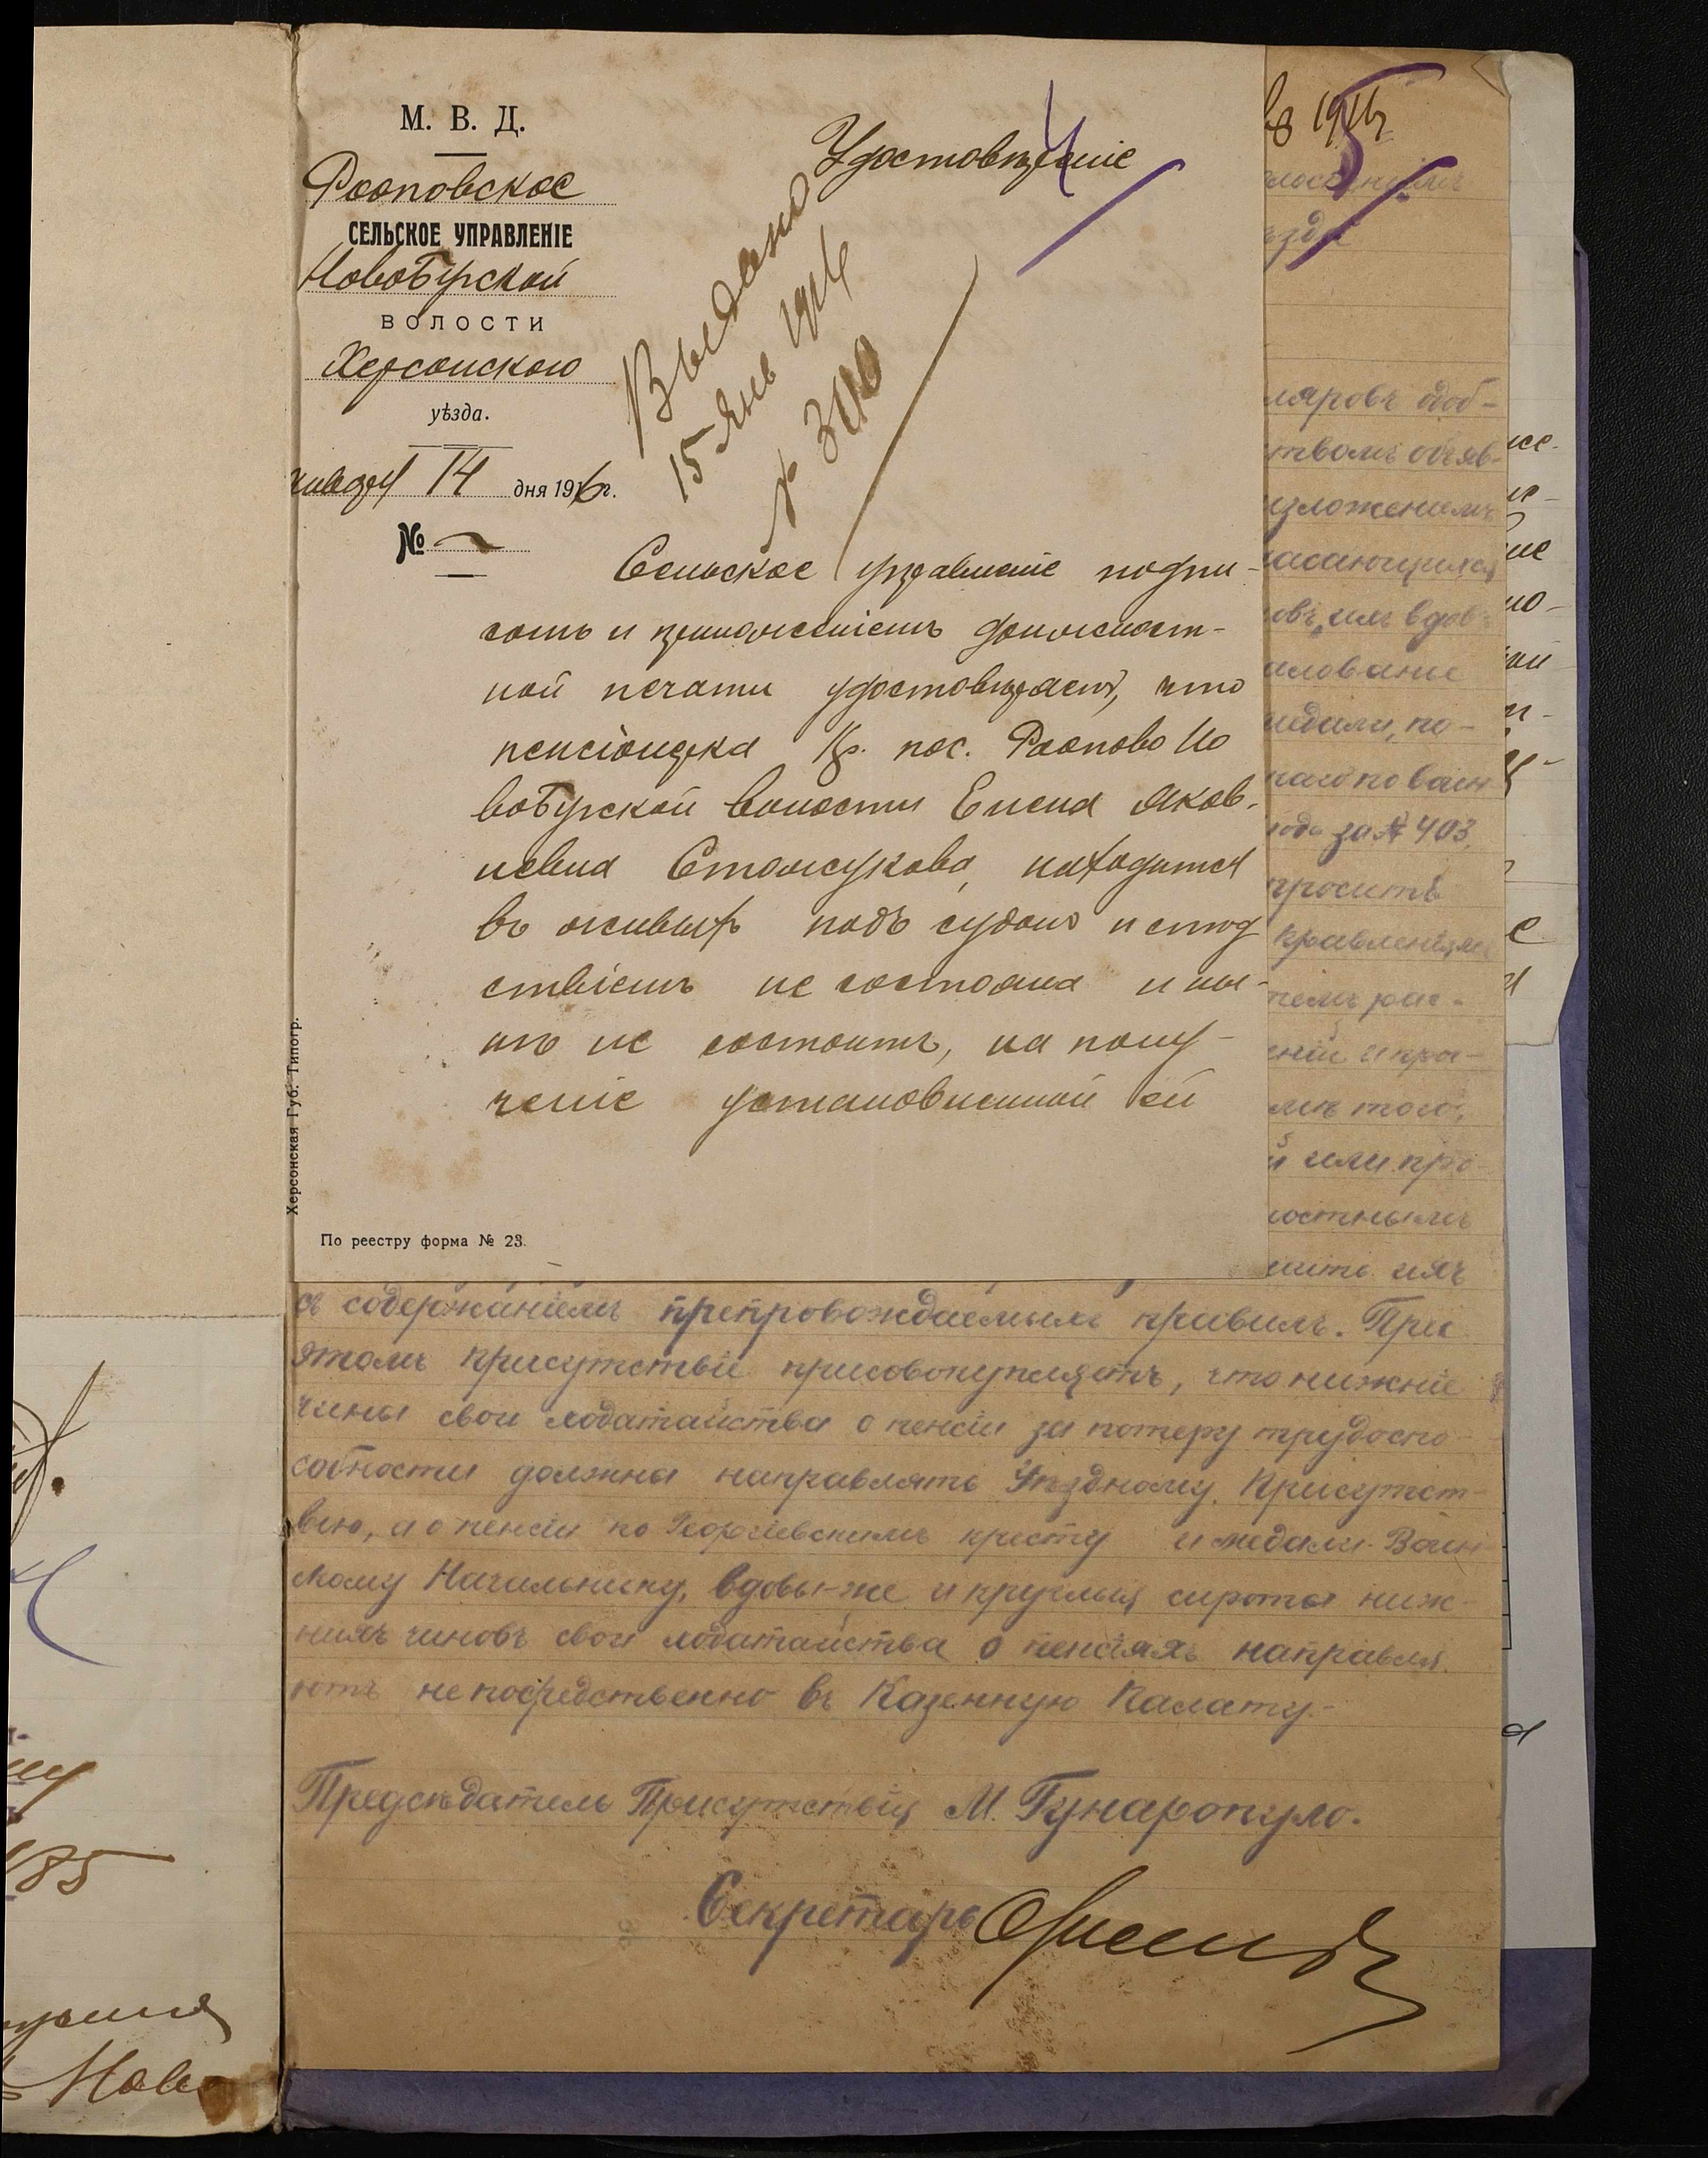 М. В. Д.
Рооповское
СЕЛЬСКОЕ УПРАВЛЕНІЕ
Новобугской
ВОЛОСТИ
Херсонскаго
уѣзда.
14 дня 1916 г.
№
Удостовѣреніе
4
Выдано
15 Янв 1916
№ 340
Сельское управленіе подпи-
сомъ и приложеніемъ должност-
ной печати удостовѣряетъ, что
пенсіонерка кр. пос. Роопово Но
вобугской волости Елена Яков-
левна Стожукова, находится
въ живыхъ подъ судомъ и слѣд
ствіемъ не состояла и ны-
нѣ не состоитъ, на полу-
ченіе установленной ей
Херсонская Губ. Типогр.
По реестру форма № 23.
5
ляровъ
ствомъ объяв-
изложеніемъ
касающихся
алованье
медали, по-
года за № 403,
просить
мъ того,
и или про-
съ содержаніемъ препровождаемыхъ правилъ. При
этомъ присутствіе присовокупляетъ, что нижніе
чины свои ходатайства о пенсіи за потерю трудоспо-
собности должны направлять Уѣздному Присутст-
вію, а о пенсіи по Георгіевскимъ кресту и медали Воин-
скому Начальнику, вдовы-же и круглыя сироты ниж-
нихъ чиновъ свои ходатайства о пенсіяхъ направля
ютъ непосредственно въ Казенную Палату.-
Предсѣдатель Присутствія М. Гунаропуло.
Секретарь
185
Ново